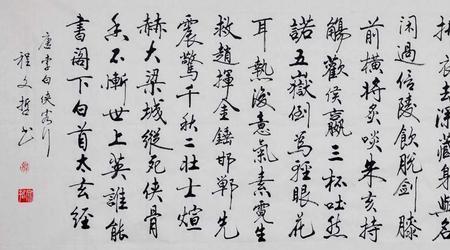 衣去深藏身與名
閑過信陵飲脫劍膝
前橫將炙啖朱亥持
觴勸侯嬴三杯吐然
諾五嶽倒為輕眼花
耳熱後意氣素霓生
救趙揮金錘邯鄲先
震驚千秋二壯士煊
赫大梁城縱死俠骨
香不慚世上英誰能
書閣下白首太玄經
唐李白俠客行
程文哲書